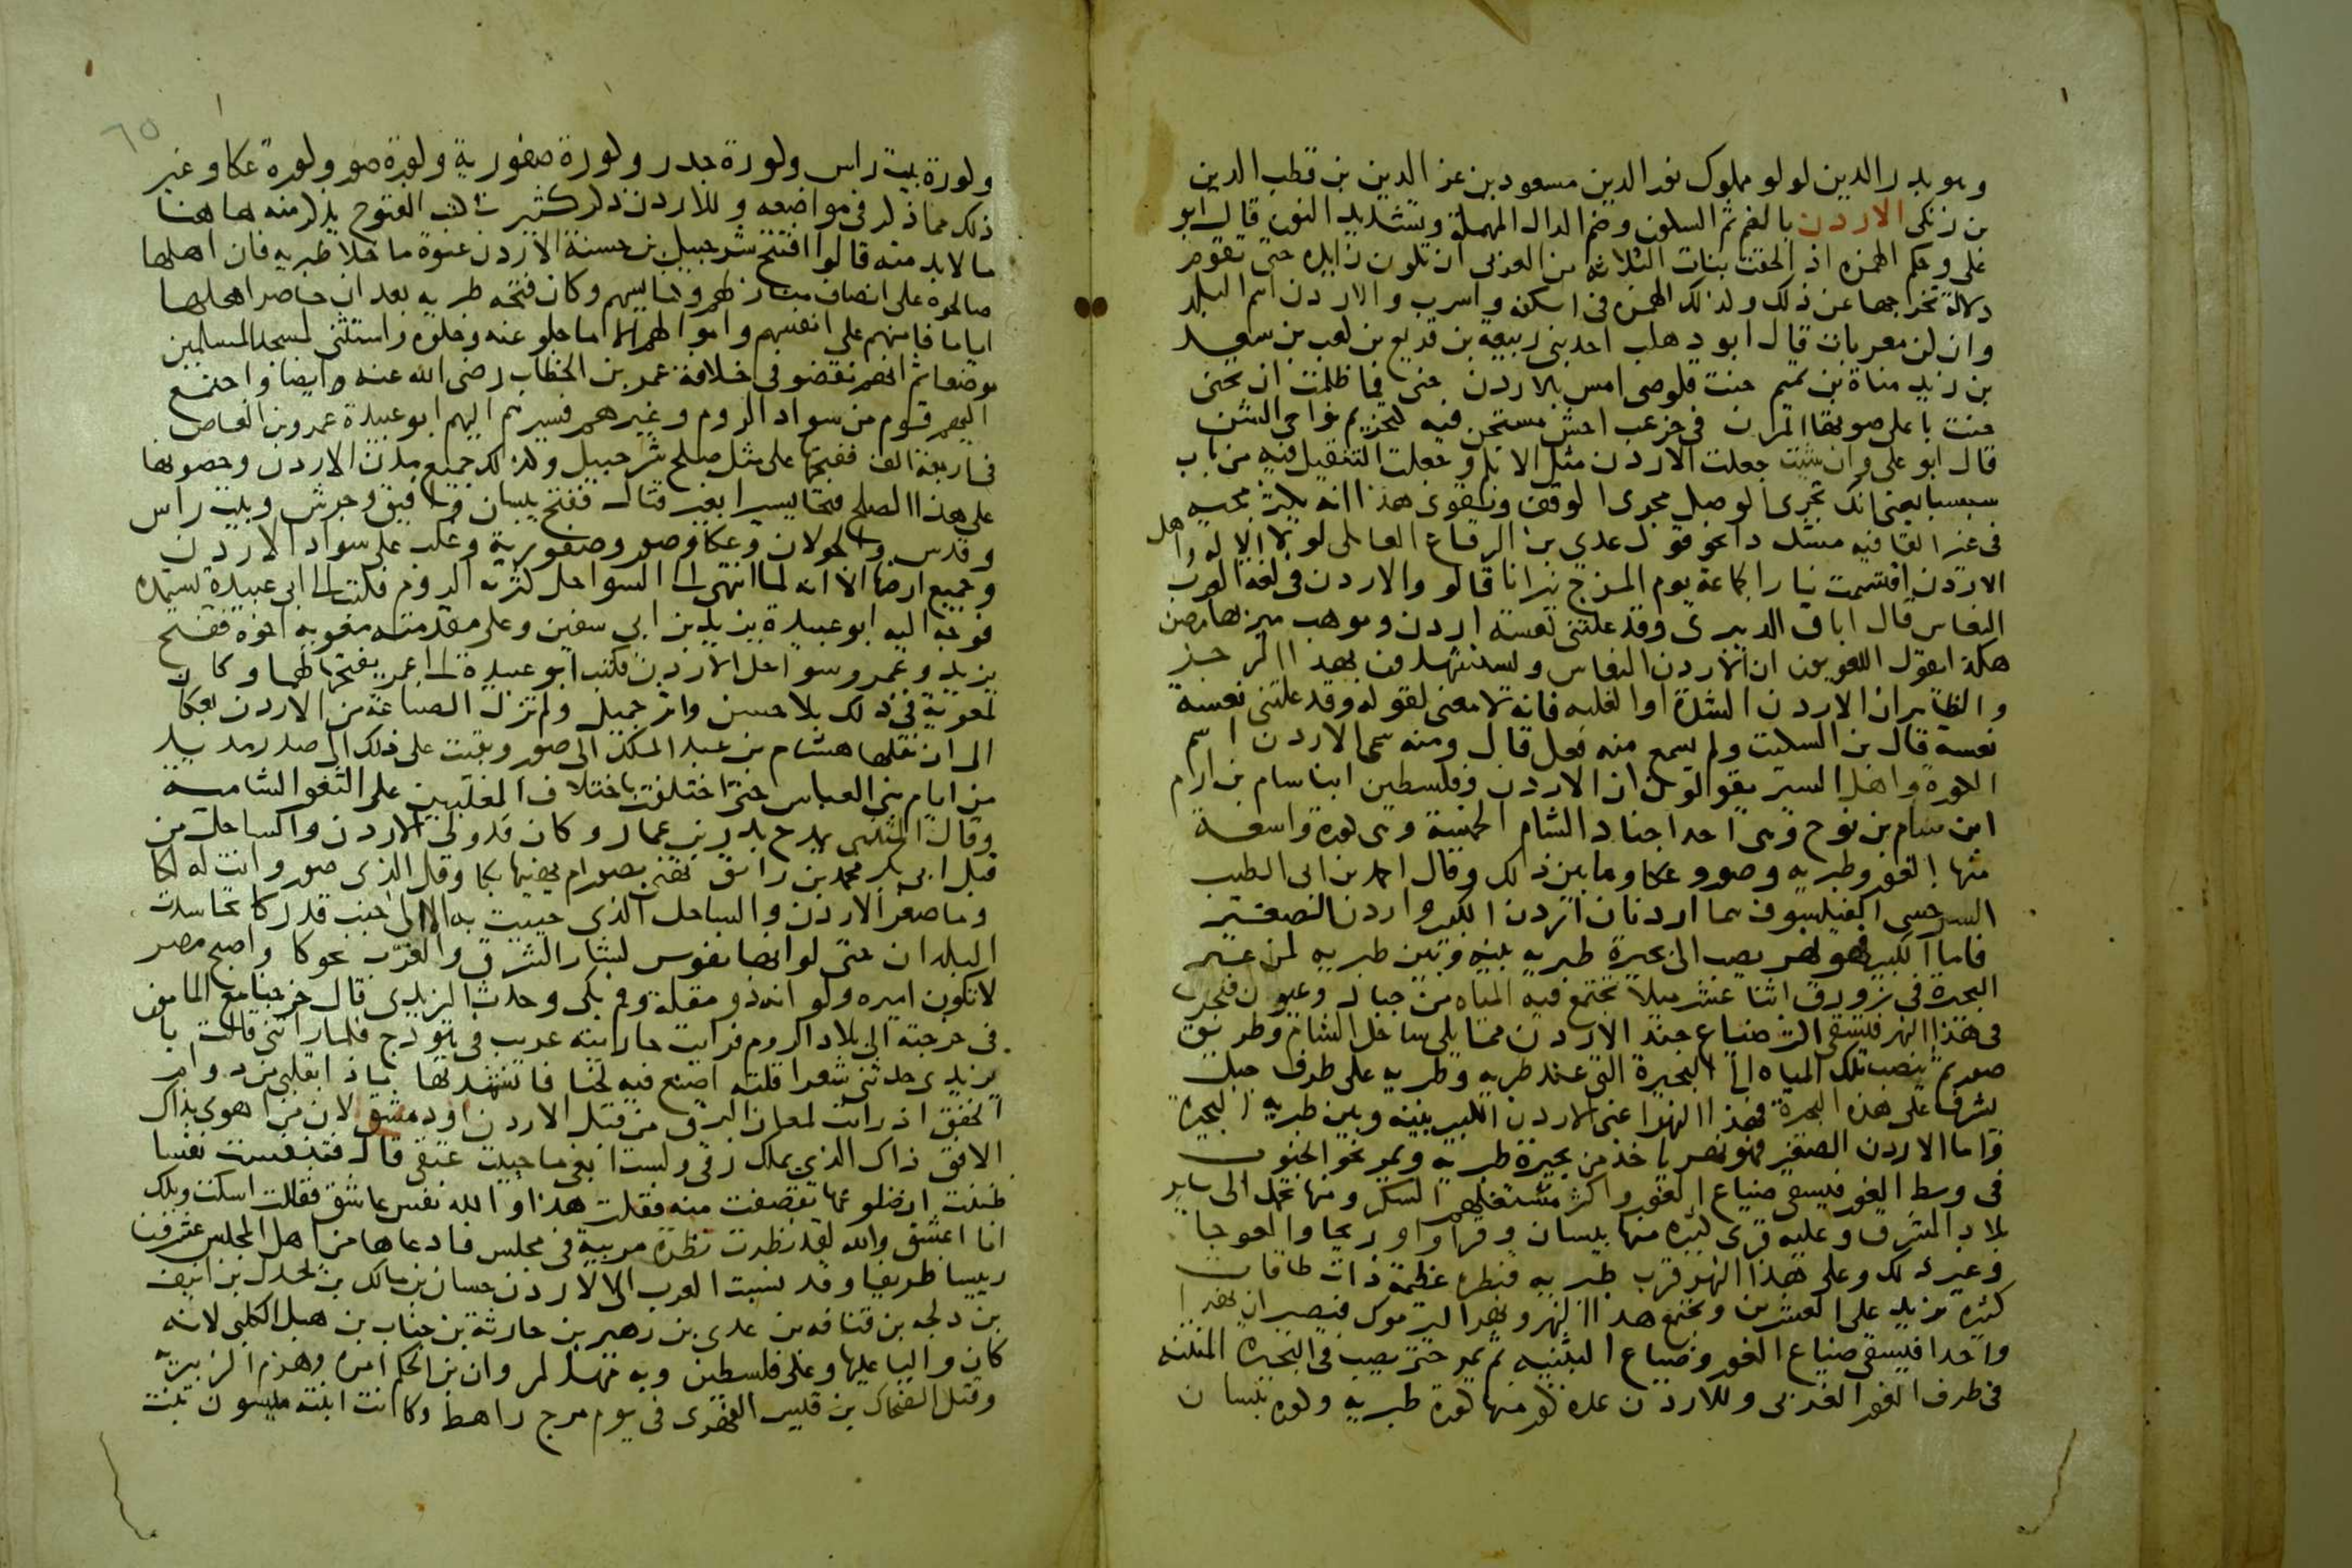 وهو بدر الدين لولو مملوك نور الدين مسعود بن عز الدين بن قطب الدين
بن زنكي الاردن بالضم ثم السكون وضم الدال المهملة وتشديد النون قال ابو
على وحكم الهمزه اذ الحقت بنات الثلاثه من العربى ان تكون زايده حتى تقوم
دلالة تخرجها عن ذلك ولذلك الهمزه فى اسكفه واسرب والاردن اسم البلد
وان كن معربات قال ابو دهلب احد بنى ربيعة بن قريع بن كعب بن سعيد
بن زيد مناة بن تميم حنت قلوصى امس بالاردن حنى فما ظلمت ان تحنى
حنت باعلى صوتها المرن فى خرعب اجش مستجن فيه كهزيم نواحى الشن
قال ابو على وان شيت جعلت الاردن مثل الابلم وجعلت التثقيل فيه من باب
سبسبا يعنى انك تجرى الوصل مجرى الوقف ويقوى هذا انه يكثر مجيه
فى غير القافيه مشدد نحو قول عدي بن الرقاع العاملى لولا الاله واهل
الاردن اقتسمت نار الجماعة يوم المرج نيرانا قالو والاردن فى لغة العرب
النعاس قال اباق الدبيرى وقد علتنى نعسة اردن وموهب مبز بها مصن
هكذا يقول اللغويون ان الاردن النعاس ويستشهدون بهذا الرجز
والظاهر ان الاردن الشدة او الغلبه فانه لا معنى لقوله وقد علتنى نعسة
نعسة قال بن السكيت ولم يسمع منه فعل قال ومنه سمى الاردن اسم
الكورة واهل السير يقولون ان الاردن وفلسطين ابنا سام بن ارام
ابن سام بن نوح وهى احد اجناد الشام الخمسة وهى كورة واسعة
منها الغور وطبريه وصور وعكا وما بين ذلك وقال احمد بن ابى الطيب
السرخسى الفيلسوف هما اردنان اردن الكبير واردن الصغير
فاما الكبير فهو نهر يصب الى بحيرة طبريه بينه وبين طبريه لمن عبر
البحيرة فى زورق اثنا عشر ميلا تجتمع فيه المياه من جبال وعيون فتجرى
فى هذا النهر فيسقى اكثر ضياع جند الاردن مما يلى ساحل الشام وطريق
صور ثم تنصب تلك المياه الى البحيرة التى عند طبريه وطبريه على طرف جبل
يشرف على هذه البحيرة فهذا النهر اعنى الاردن الكبير بينه وبين طبريه البحيرة
واما الاردن الصغير فهو نهر ياخذ من بحيرة طبريه ويمر نحو الجنوب
فى وسط الغور فيسقى ضياع الغور واكثر مستغلهم السكر ومنها يحمل الى ساير
بلاد المشرق وعليه قرى كثيره منها بيسان وقراوا واريحا والعوجا
وغير ذلك وعلى هذا النهر قرب طبريه قنطره عظيمة ذات طاقات
كثيره تزيد على العشرين ويجتمع هذا النهر ونهر اليرموك فيصيران نهرا
واحدا فيسقى ضياع الغور وضياع البثنيه ثم يمر حتى يصب فى البحيره المنتنه
فى طرف الغور الغربى وللاردن عدة كور منها كورة طبريه وكورة بيسان
وكورة بيت راس وكورة جدر وكورة صفورية وكورة صور وكورة عكا وغير
ذلك مما ذكر فى مواضعه وللاردن ذكر كثير فى كتب الفتوح يذكر منه هاهنا
ما لا بد منه قالوا افتتح شرحبيل بن حسنة الاردن عنوة ما خلا طبريه فان اهلها
صالحوه على انصاف منازلهم وكنايسهم وكان فتحه طبريه بعد ان حاصر اهلها
اياما فامنهم على انفسهم واموالهم الا ما جلو عنه وخلوه واستثنى لمسجد المسلمين
موضعا ثم انهم نقضو فى خلافة عمر بن الخطاب رضى الله عنه وايضا واجتمع
اليهم قوم من سواد الروم وغيرهم فسير اليهم ابو عبيدة عمرو بن العاص
فى اربعة الف ففتحها على مثل صلح شرحبيل ولذلك جميع مدن الاردن وحصونها
على هذا الصلح فتحا يسيرا بغير قتال ففتح بيسان وافيق وجرش وبيت راس
وقدس والجولان وعكا وصور وصفورية وغلب على سواد الاردن
وجميع ارضها الا انه لما انتهى الى السواحل كثرة الروم فكتب الى ابى عبيدة يستمده
فوجه اليه ابو عبيدة يزيد بن ابي سفين وعلى مقدمته معويه اخوه ففتح
يزيد وعمرو سواحل الاردن فكتب ابو عبيدة الى عمر بفتحها لهما وكان
لمعوية فى ذلك بلا حسن واثر جميل ولم تزل الصناعة من الاردن بعكا
الى ان نقلها هشام بن عبد الملك الى صور وبقيت على ذلك الى صدر مديد
من ايام بنى العباس حتى اختلفت باختلاف المغلبين على الثغو الشامية
وقال المتنبى يمدح بدر بن عمار وكان قد ولى الاردن والساحل من
قبل ابى بكر محمد بن رائق تهنى بصور ام نهنيها بكا وقل الذى صور وانت له لكا
وما صغر الاردن والساحل الذى حبيت به الا الى جنب قدركا تحاسدت
البلدان حتى لو انها نفوس لسار الشرق والغرب نحوكا واصبح مصر
لا تكون اميره ولو انه ذو مقلة وفم بكى وحدث اليزيدى قال خرجنا مع المامون
فى خرجته الى بلاد الروم فرايت جاريته عريب فى هودج فلما راتنى قالت يا
يزيدى حدثنى شعرا قلته اصنع فيه لحنا فانشدتها ماذا بقلبى من دوام
الخفق اذ رايت لمعان البرق من قبل الاردن او دمشق لان من اهوى بذاك
الافق ذاك الذى يملك رقى ولست ابغى ما حييت عتقى قال فتنفست نفسا
ظننت ان ضلوعها تقصفت منه فقلت هذا والله نفس عاشق فقالت اسكت ويلك
انا اعشق والله لقد نظرت نظرة مريبة فى مجلس فادعاها من اهل المجلس عشرون
رييسا ظريفا وقد نسبت العرب الى الاردن حسان بن مالك بن بحدل بن انيف
بن دلجه بن قنافه بن عدى بن زهير بن حارثة بن جناب بن هبل الكلبى لانه
كان واليا عليها وعلى فلسطين وبه مهد لمروان بن الحكم امره وهزم الزبيريه
وقتل الضحاك بن قيس الفهرى فى يوم مرج راهط وكانت ابنته ميسون بنت